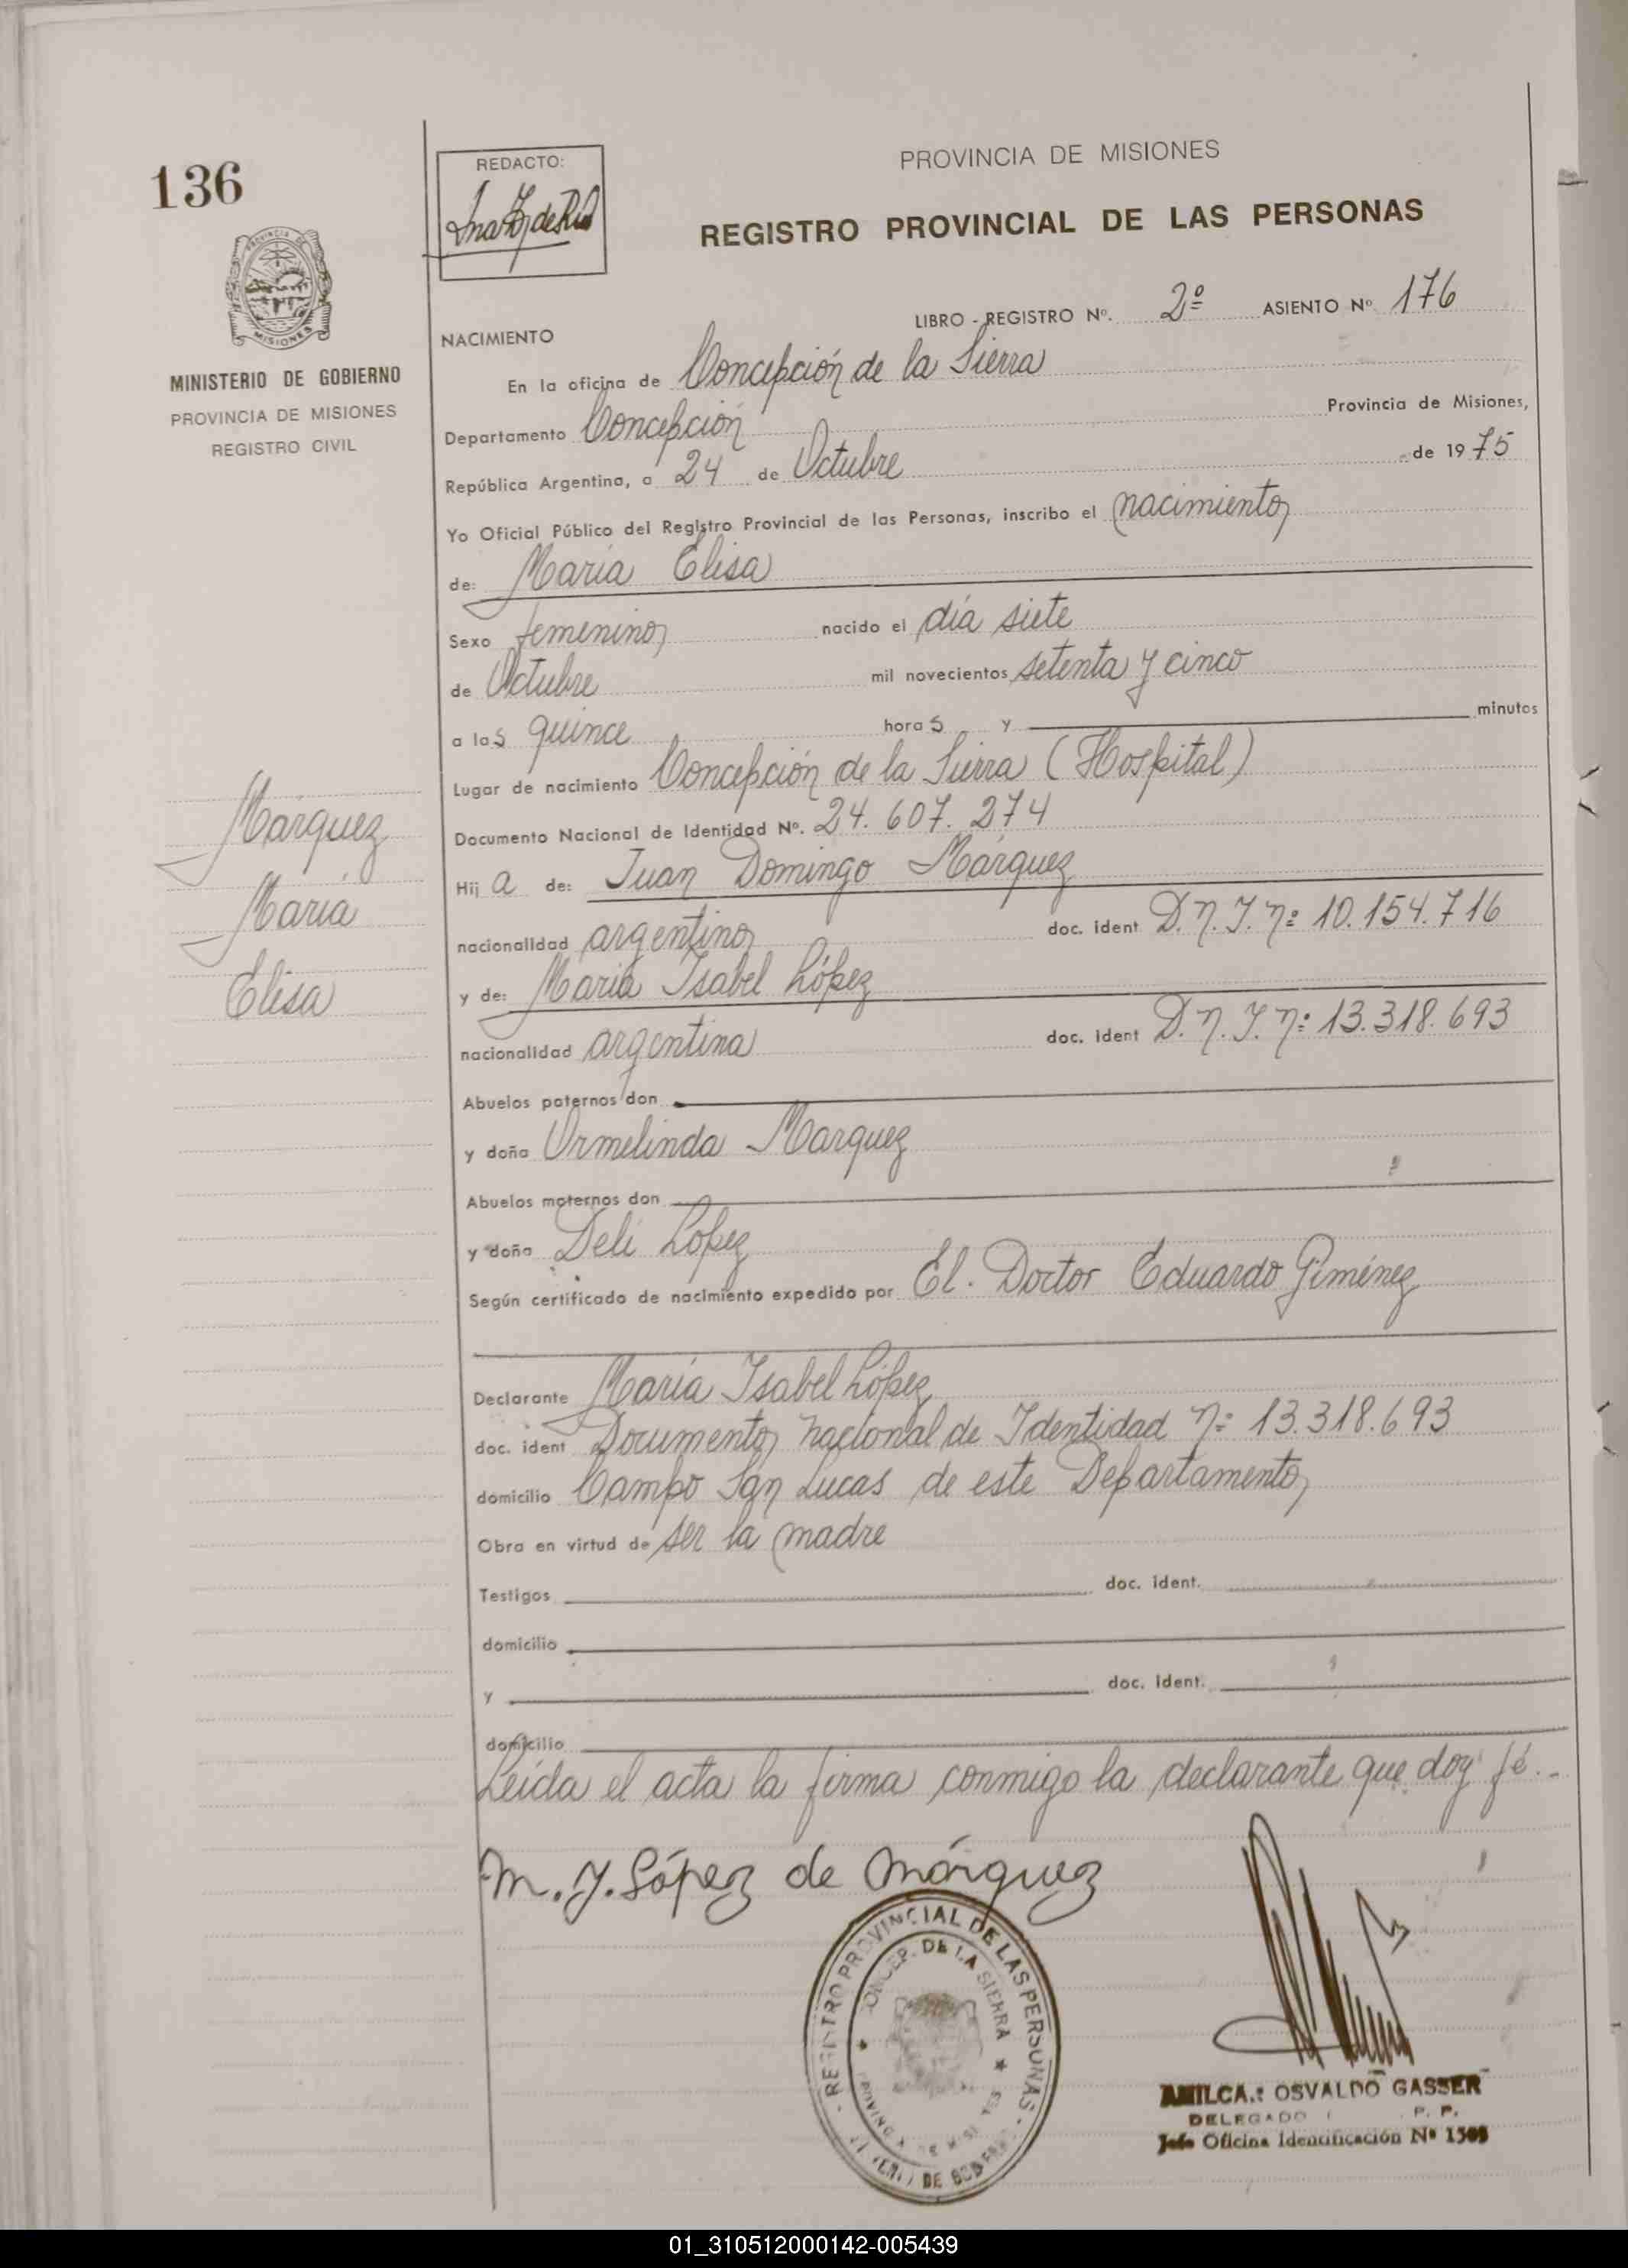 136
REDACTO:
PROVINCIA DE MISIONES
REGISTRO PROVINCIAL DE LAS PERSONAS
PROVINCIA DE
MISIONES
MINISTERIO DE GOBIERNO
PROVINCIA DE MISIONES
REGISTRO CIVIL
LIBRO - REGISTRO Nº. 2º ASIENTO Nº 176
NACIMIENTO
En la oficina de Concepción de la Sierra
Departamento Concepción Provincia de Misiones,
República Argentina, a 24 de Octubre de 1975
Yo Oficial Público del Registro Provincial de las Personas, inscribo el nacimiento
de: María Elisa
Sexo femenino nacido el día siete
de Octubre mil novecientos setenta y cinco
a las quince horas y minutos
Lugar de nacimiento Concepción de la Sierra (Hospital)
Documento Nacional de Identidad Nº. 24.607.274
Márquez
María
Elisa
Hija de: Juan Domingo Márquez
nacionalidad argentino doc. ident D.N.I. Nº 10.154.716
y de: María Isabel López
nacionalidad argentina doc. ident D.N.I. Nº 13.318.693
Abuelos paternos don
y doña Ormelinda Marquez
Abuelos maternos don
y doña Deli López
Según certificado de nacimiento expedido por El. Doctor Eduardo Giménez
Declarante María Isabel López
doc. ident Documento Nacional de Identidad Nº 13.318.693
domicilio Campo San Lucas de este Departamento
Obra en virtud de ser la madre
Testigos doc. ident.
domicilio
y doc. ident.
domicilio
Leída el acta la firma conmigo la declarante que doy fé.-
M. I. López de Márquez
PROVINCIAL DE LAS PERSONAS
DE LA SIERRA
OSVALDO GASSER
DELEGADO
Jefe Oficina Identificación Nº
01_310512000142-005439